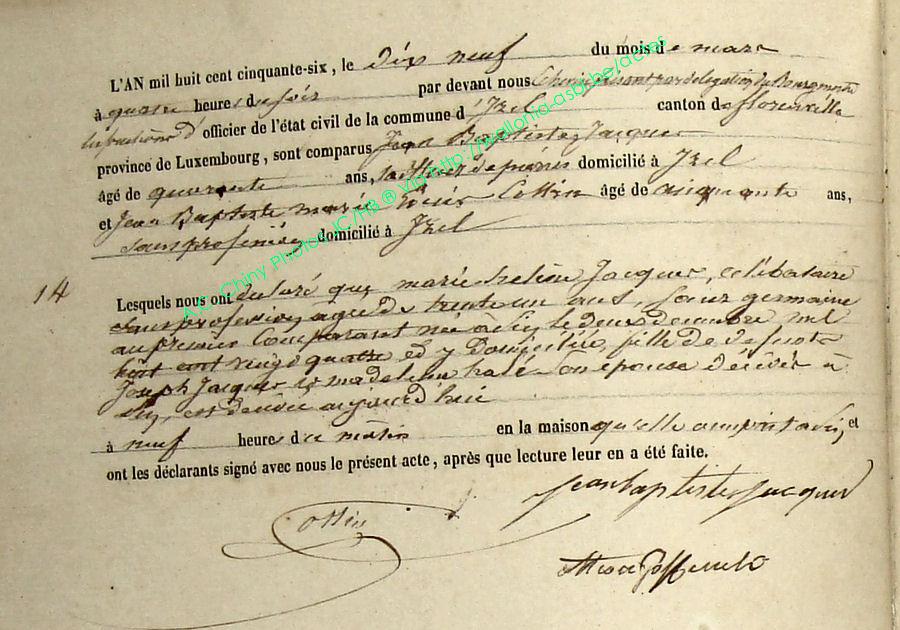 L'AN mil huit cent cinquante-six, le dix neuf du mois de mars
à quatre heures du soir par devant nous Echevin faisant par délégation du Bourgmestre
les fonctions d'officier de l'état civil de la commune d'Izel canton de florenville
province de Luxembourg, sont comparus Jean Baptiste Jacques
âgé de quarante ans, domicilié à Izel
et Jean Baptiste marie Louis Collin âgé de cinquante ans,
Sans profession domicilié à Izel
14
Lesquels nous ont declaré que marie Jacques, celibataire
Sans profession, agée de trente un ans, Soeur germaine
au premier Comparant née à le deux decembre mil
huit cent vingt quatre et y Domiciliée, fille de defunts
Joseph Jacques et madeleine Son epouse décédés à
est décédée aujourd'hui
à neuf heures du matin en la maison qu'elle et
ont les déclarants signé avec nous le présent acte, après que lecture leur en a été faite.
Jean baptiste Jacques
Collin
A.S. Chiny Photos JC/HB ® Via http://wallonia-asbl.be/actes